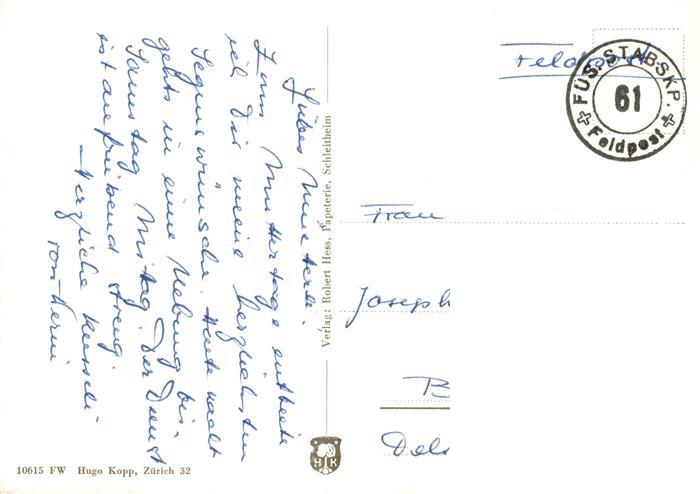 Liebes Müeterli.
Zum Muttertage entbiete
ich Dir meine herzlichsten
Segenswünsche. Heute nacht
gehts in eine Uebung bis
Samstag Mittag. Der Dienst
ist anstreng.
Herzliche
von
Verlag: Robert Hess, Papeterie, Schleitheim
Feldpost
FÜS. STABSKP.
61
Feldpost
Frau
Joseph
B
Dels
H K
10615 FW Hugo Kopp, Zürich 32